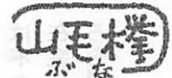 山毛欅
ぶな